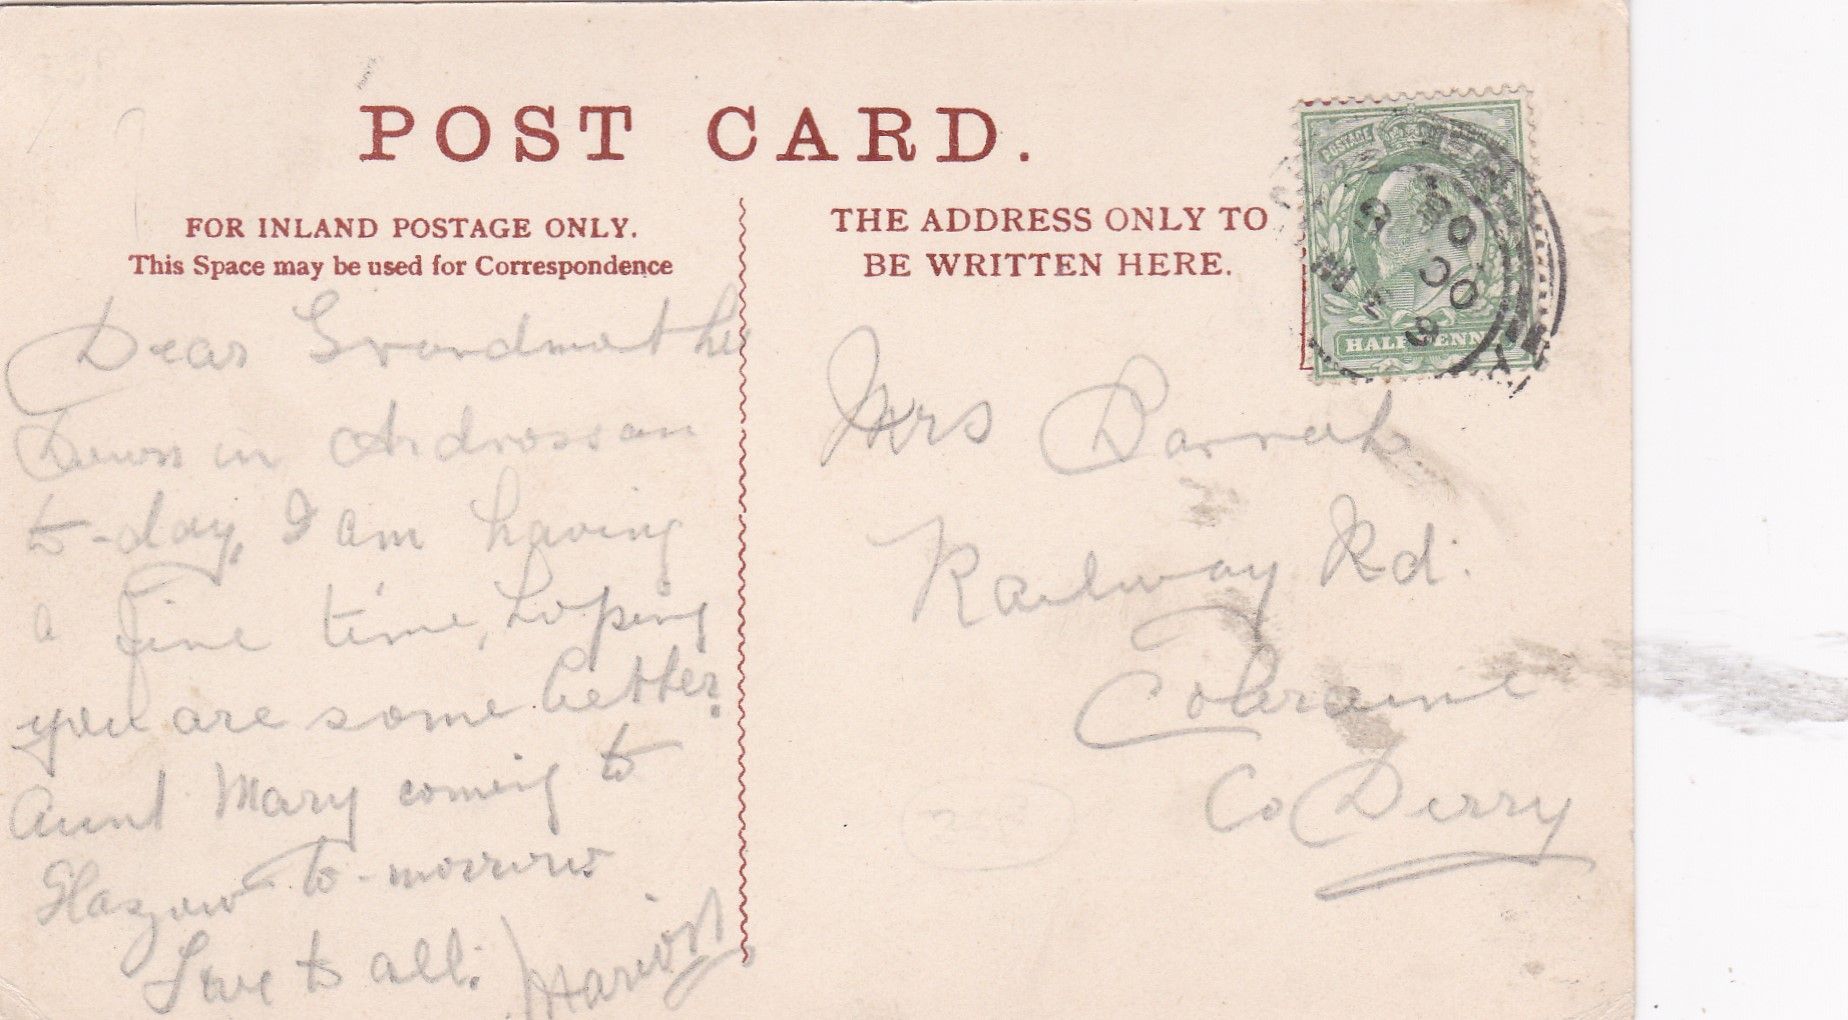 POST CARD.
FOR INLAND POSTAGE ONLY.
This Space may be used for Correspondence
THE ADDRESS ONLY TO
BE WRITTEN HERE.
POSTAGE
HALFPENNY
Dear Grandmother
Down in Ardrossan
to-day, I am having
a fine time, hoping
you are some better.
Aunt Mary coming to
Glasgow to-morrow
Love to all.
Marion
Mrs Darrah
Railway Rd.
Colraine
Co Derry